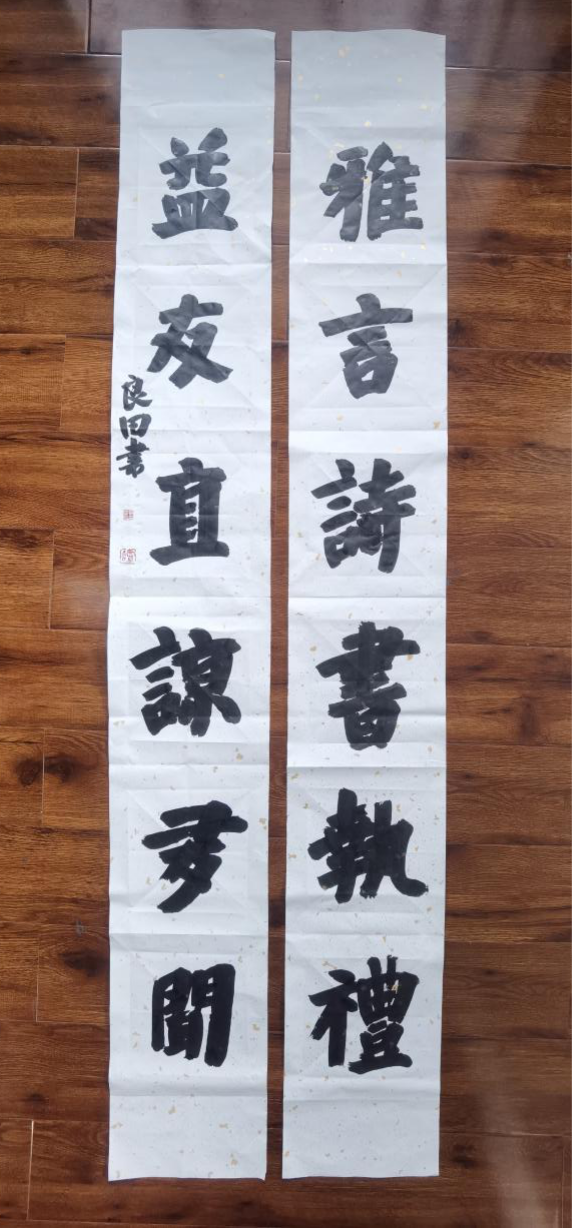 雅言詩書執禮
益友直諒多聞
良田書